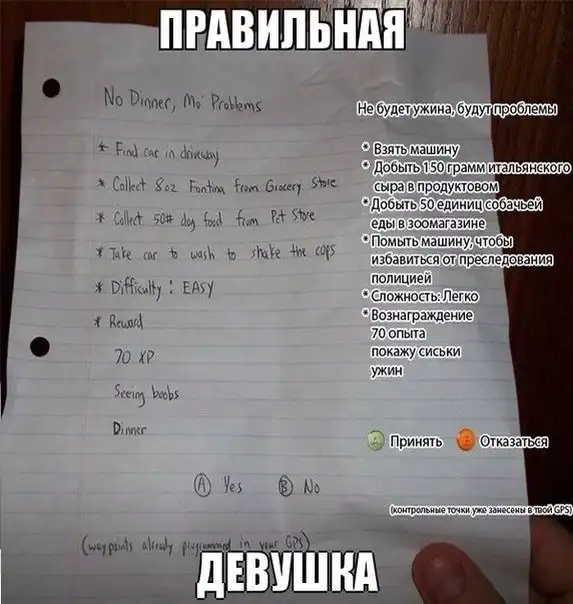 ПРАВИЛЬНАЯ
No Dinner, Mo' Problems
* Find car in driveway
* Collect 8oz Fontina from Grocery Store
* Collect 50# dog food from Pet Store
* Take car to wash to shake the cops
* Difficulty: EASY
* Reward
70 XP
Seeing boobs
Dinner
A Yes B No
(waypoints already programmed in your GPS)
Не будет ужина, будут проблемы
* Взять машину
* Добыть 150 грамм итальянского
сыра в продуктовом
* Добыть 50 единиц собачьей
еды в зоомагазине
* Помыть машину, чтобы
избавиться от преследования
полицией
* Сложность: Легко
* Вознаграждение
70 опыта
покажу сиськи
ужин
Принять Отказаться
(контрольные точки уже занесены в твой GPS)
ДЕВУШКА